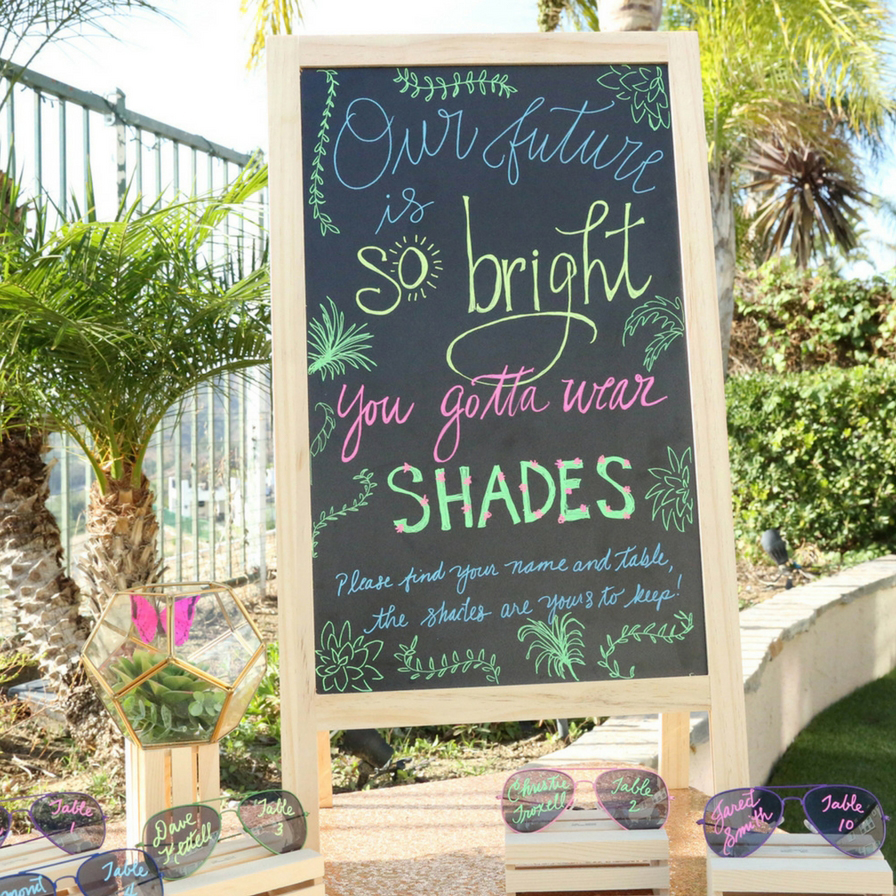 Our future
is
so bright
You gotta wear
SHADES
Please find your name and table,
the shades are yours to keep!
Table
1
Dave
Table
3
Christie
Troxell
Table
2
Jared
Smith
Table
10
Table